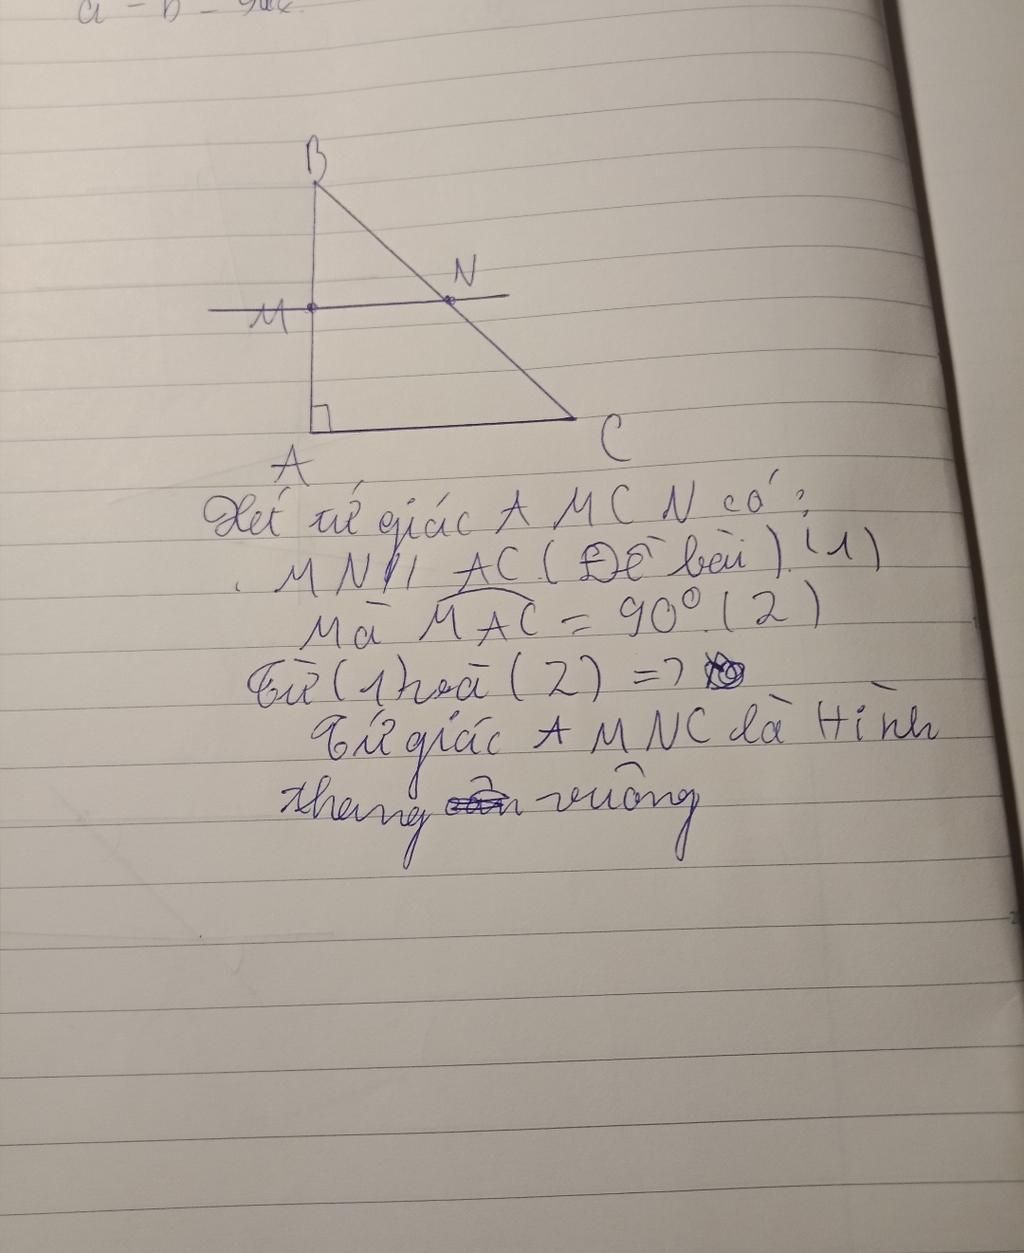 B
N
M
A
C
Xét tứ giác AMCN có:
MN // AC (Đề bài) (1)
Mà MAC = 90° (2)
Từ (1) và (2) =>
Tứ giác AMNC là Hình
thang vuông